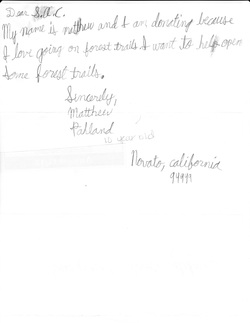 Dear S.N.C.
My name is matthew and I am donating because
I love going on forest trails. I want to help open
some forest trails.
Sincerely,
Matthew
Palland
Novato, california
94971